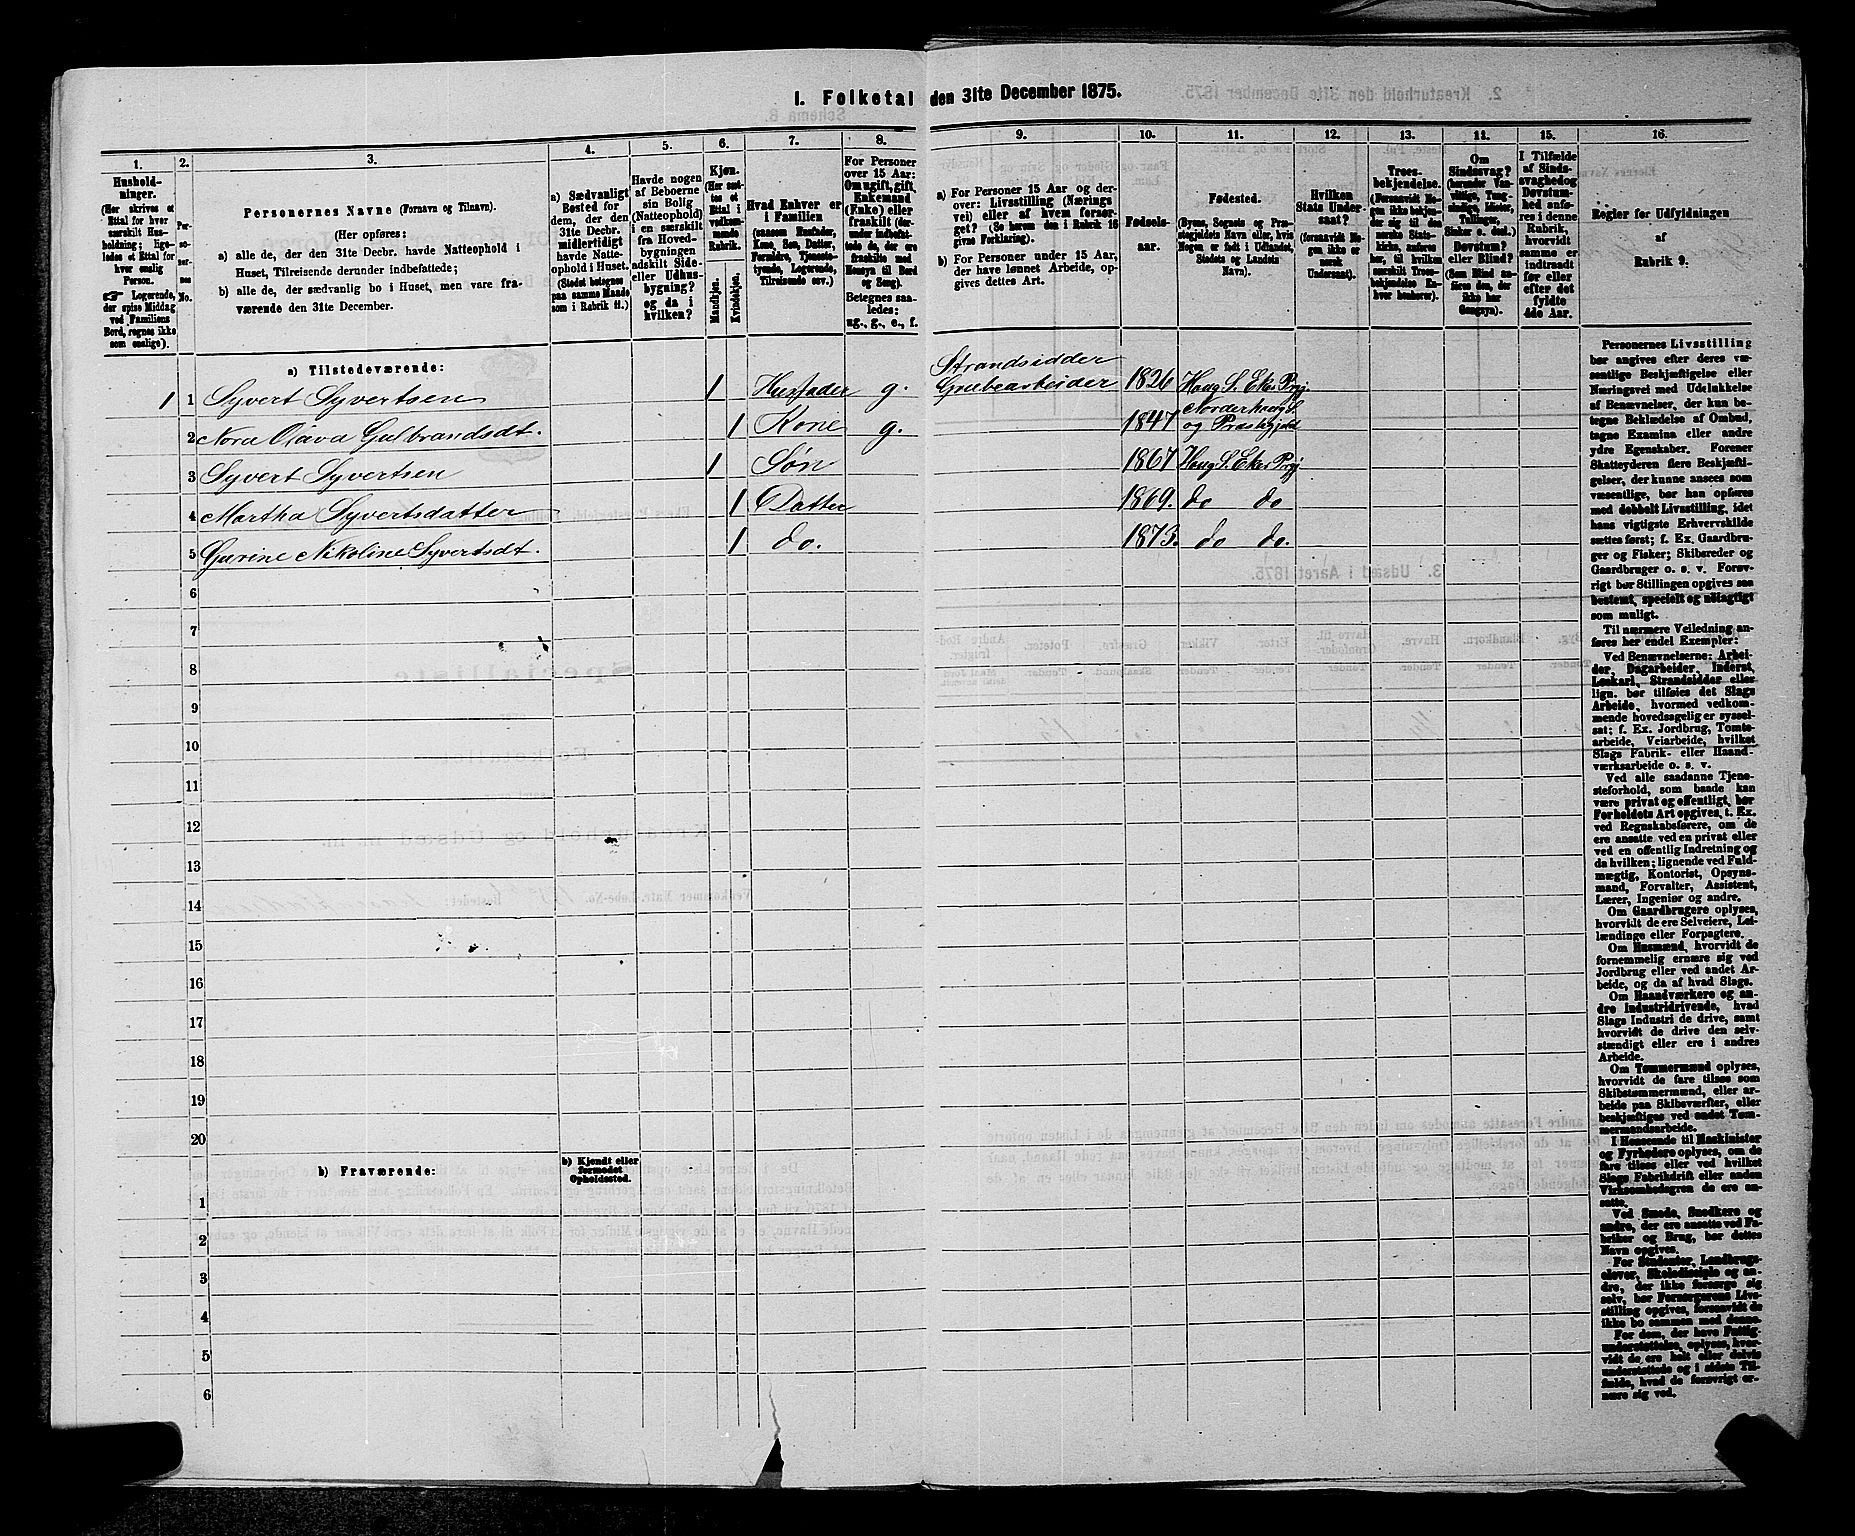 I. Folketal den 31te December 1875.
1.
Hushold-
ninger.
(Her skrives et
Ettal for hver
særskilt Hus-
holdning; lige-
ledes et Ettal for
hver enslig
Person.
☞ Logerende,
der spise Middag
ved Familiens
Bord, regnes ikke
som enslige).
2.
Per-
so-
ner-
nes
No.
3.
Personernes Navne (Fornavn og Tilnavn).
(Her opføres:
a) alle de, der den 31te Decbr. havde Natteophold i
Huset, Tilreisende derunder indbefattede;
b) alle de, der sædvanlig bo i Huset, men vare fra-
værende den 31te December.
4.
a) Sædvanligt
Bosted for
dem, der den
31te Decbr.
midlertidigt
havde Natte-
ophold i Huset.
(Stedet betegnes
paa samme Maade
som i Rubrik 11.)
5.
Havde nogen
af Beboerne
sin Bolig
(Natteophold)
i en særskilt
fra Hoved-
bygningen
adskilt Side-
eller Udhus-
bygning?
og da i
hvilken?
6.
Kjøn.
(Her sæt-
tes et
Ettal i
vedkom-
mende
Rubrik.
Mandkjøn.
Kvindekjøn.
7.
Hvad Enhver er
i Familien
(saasom Husfader,
Kone, Søn, Datter,
Forældre, Tjeneste-
tyende, Logerende,
Tilreisende osv.)
8.
For Personer
over 15 Aar:
Om ugift, gift,
Enkemand
(Enke) eller
fraskilt (der-
under indbefat-
tede de, der ere
fraskilte med
Hensyn til Bord
og Seng).
Betegnes saa-
ledes:
ug., g., e., f.
9.
a) For Personer 15 Aar og der-
over: Livsstilling (Nærings
vei) eller af hvem forsør-
get? (Se herom den i Rubrik 16
givne Forklaring).
b) For Personer under 15 Aar,
der have lønnet Arbeide, op-
gives dettes Art.
10.
Fødsels-
aar.
11.
Fødested.
(Byens, Sognets og Præ-
stegjeldets Navn eller, hvis
Nogen er født i Udlandet,
Stedets og Landets
Navn).
12.
Hvilken
Stats Under-
saat?
(forsaavidt No-
gen ikke er
norsk
Undersaat).
13.
Troes-
bekjendelse.
(Forsaavidt No-
gen ikke bekjen-
der sig til den
norske Stats-
kirke, anføres
her, til hvilken
særskilt Troes-
bekjendelse En-
hver henhører).
14.
Om
Sindssvag?
(herunder Van-
vittige, Tung-
sindige, Idioter,
Tullinger,
Sinker o. desl.)
Døvstum?
eller Blind?
(Som Blind an-
føres den, der
ikke har
Gangsyn).
15.
I Tilfælde
af Sinds-
svaghed og
Døvstum-
hed anfø-
res i denne
Rubrik,
hvorvidt
samme er
indtraadt
før eller
efter det
fyldte
4de Aar.
16.
Regler for Udfyldningen
af
Rubrik 9.
a) Tilstedeværende:
1 1 Syvert Syvertsen 1 Husfader g. Strandsidder Grubearbeider 1826 Haug S. Eker Prgj
2 Nora Olava Gulbrandsdt. 1 Kone g. 1847 Norderhaug S. og Præstegjeld
3 Syvert Syvertsen 1 Søn 1867 Haug S. Eker Prgj
4 Martha Syvertsdatter 1 Datter 1869. do do
5 Gurine Nikoline Syvertsdt. 1 do. 1873. do do.
6
7
8
9
10
11
12
13
14
15
16
17
18
19
20
b) Fraværende:
b) Kjendt eller
formodet
Opholdssted.
1
2
3
4
5
6
Personernes Livsstilling
bør angives efter deres væ-
sentlige Beskjæftigelse eller
Næringsvei med Udelukkelse
af Benævnelser, der kun be-
tegne Beklædelse af Ombud,
tagne Examina eller andre
ydre Egenskaber. Forener
Skatteyderen flere Beskjæfti-
gelser, der kunne ansees som
væsentlige, bør han opføres
med dobbelt Livsstilling, idet
hans vigtigste Erhvervskilde
sættes først; f. Ex. Gaardbru-
ger og Fisker; Skibsreder og
Gaardbruger o. s. v. Forøv-
rigt bør Stillingen opgives saa
bestemt, specielt og nøiagtigt
som muligt.
Til nærmere Veiledning an-
føres her endel Exempler:
Ved Benævnelserne: Arbei-
der, Dagarbeider, Inderst,
Løskarl, Strandsidder eller
lign. bør tilføies det Slags
Arbeide, hvormed vedkom-
mende hovedsagelig er syssel-
sat; f. Ex. Jordbrug, Tomte-
arbeide, Veiarbeide, hvilket
Slags Fabrik- eller Haand-
værksarbeide o. s. v.
Ved alle saadanne Tjene-
steforhold, som baade kan
være privat og offentligt, bør
Forholdets Art opgives, t. Ex.
ved Regnskabsførere, om de
ere ansatte ved en privat eller
ved en offentlig Indretning og
da hvilken; lignende ved Fuld-
mægtig, Kontorist, Opsyns-
mand, Forvalter, Assistent,
Lærer, Ingeniør og andre.
Om Gaardbrugere oplyses,
hvorvidt de ere Selveiere, Lei-
lændinge eller Forpagtere.
Om Husmænd, hvorvidt de
fornemmelig ernære sig ved
Jordbrug eller ved andet Ar-
beide, og da af hvad Slags.
Om Haandværkere og an-
dre Industridrivende, hvad
Slags Industri de drive, samt
hvorvidt de drive den selv-
stændigt eller ere i andres
Arbeide.
Om Tømmermænd oplyses,
hvorvidt de fare tilsøs som
Skibstømmermænd, eller ar-
beide paa Skibsværfter, eller
beskjæftiges ved andet Tøm-
mermandsarbeide.
I Henseende til Maskinister
og Fyrbødere oplyses, om de
fare tilsøs eller ved hvilket
Slags Fabrikdrift eller anden
Virksomhedsgren de ere an-
satte.
Ved Smede, Snedkere og
andre, der ere ansatte ved Fa-
briker og Brug, bør dettes
Navn opgives.
For Studenter, Landbrugs-
elever, Skoledisciple og an-
dre, der ikke forsørge sig
selv, bør Forsørgerens Livs-
stilling opgives, forsaavidt de
ikke bo sammen med denne.
For dem, der have Fattig-
understøttelse, oplyses, hvor-
vidt de ere helt eller delvis
understøttede og i sidste Til-
fælde, hvad de forøvrigt er-
nære sig ved.